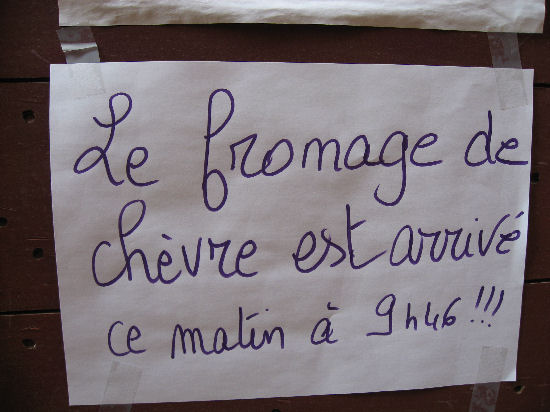 Le fromage de
chèvre est arrivé
ce matin à 9h46 !!!